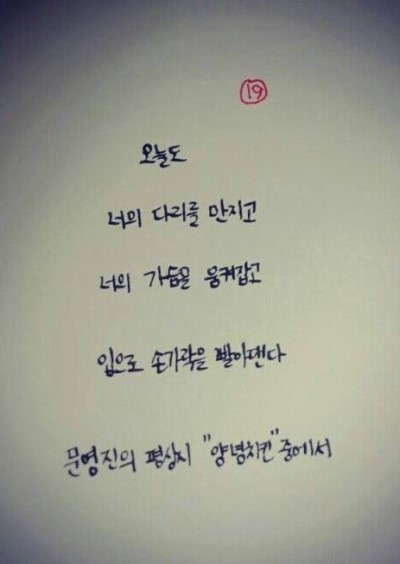 19
오늘도
너의 다리를 만지고
너의 가슴을 움켜잡고
입으로 손가락을 빨아댄다
문영진의 평상시 "양념치킨"중에서